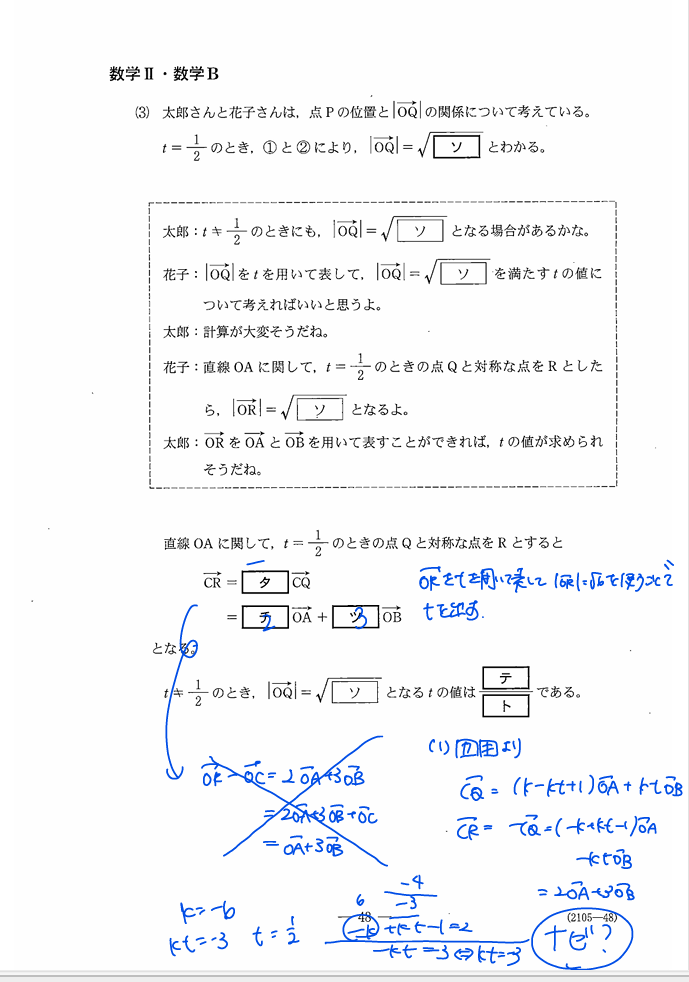 数学Ⅱ・数学B
(3) 太郎さんと花子さんは，点Pの位置と|OQ→|の関係について考えている。
t = 1/2 のとき，①と②により，|OQ→| = √ソ とわかる。
太郎：t ≠ 1/2 のときにも，|OQ→| = √ソ となる場合があるかな。
花子：|OQ→|をtを用いて表して，|OQ→| = √ソ を満たすtの値に
ついて考えればいいと思うよ。
太郎：計算が大変そうだね。
花子：直線OAに関して，t = 1/2 のときの点Qと対称な点をRとした
ら，|OR→| = √ソ となるよ。
太郎：OR→をOA→とOB→を用いて表すことができれば，tの値が求められ
そうだね。
直線OAに関して，t = 1/2 のときの点Qと対称な点をRとすると
CR→ = タ CQ→
−
= チ OA→ + ツ OB→
2 3
となる。
t ≠ 1/2 のとき，|OQ→| = √ソ となるtの値は テ/ト である。
OR→をtを用いて表して |OR→|=√6を使うことで
tを出す.
OR→ − OC→ = 2OA→+3OB→
= 2OA→+3OB→+OC→
= OA→+3OB→
(1) カ キ より
CQ→ = (k−kt+1)OA→+ktOB→
CR→ = −CQ→=(−k+kt−1)OA→
−ktOB→
= 2OA→+3OB→
k=−6
kt=−3 t=1/2
−4
6 −3
−k+kt−1=2
−kt=3⇔kt=−3
なぜ?
— 48 —
(2105—48)